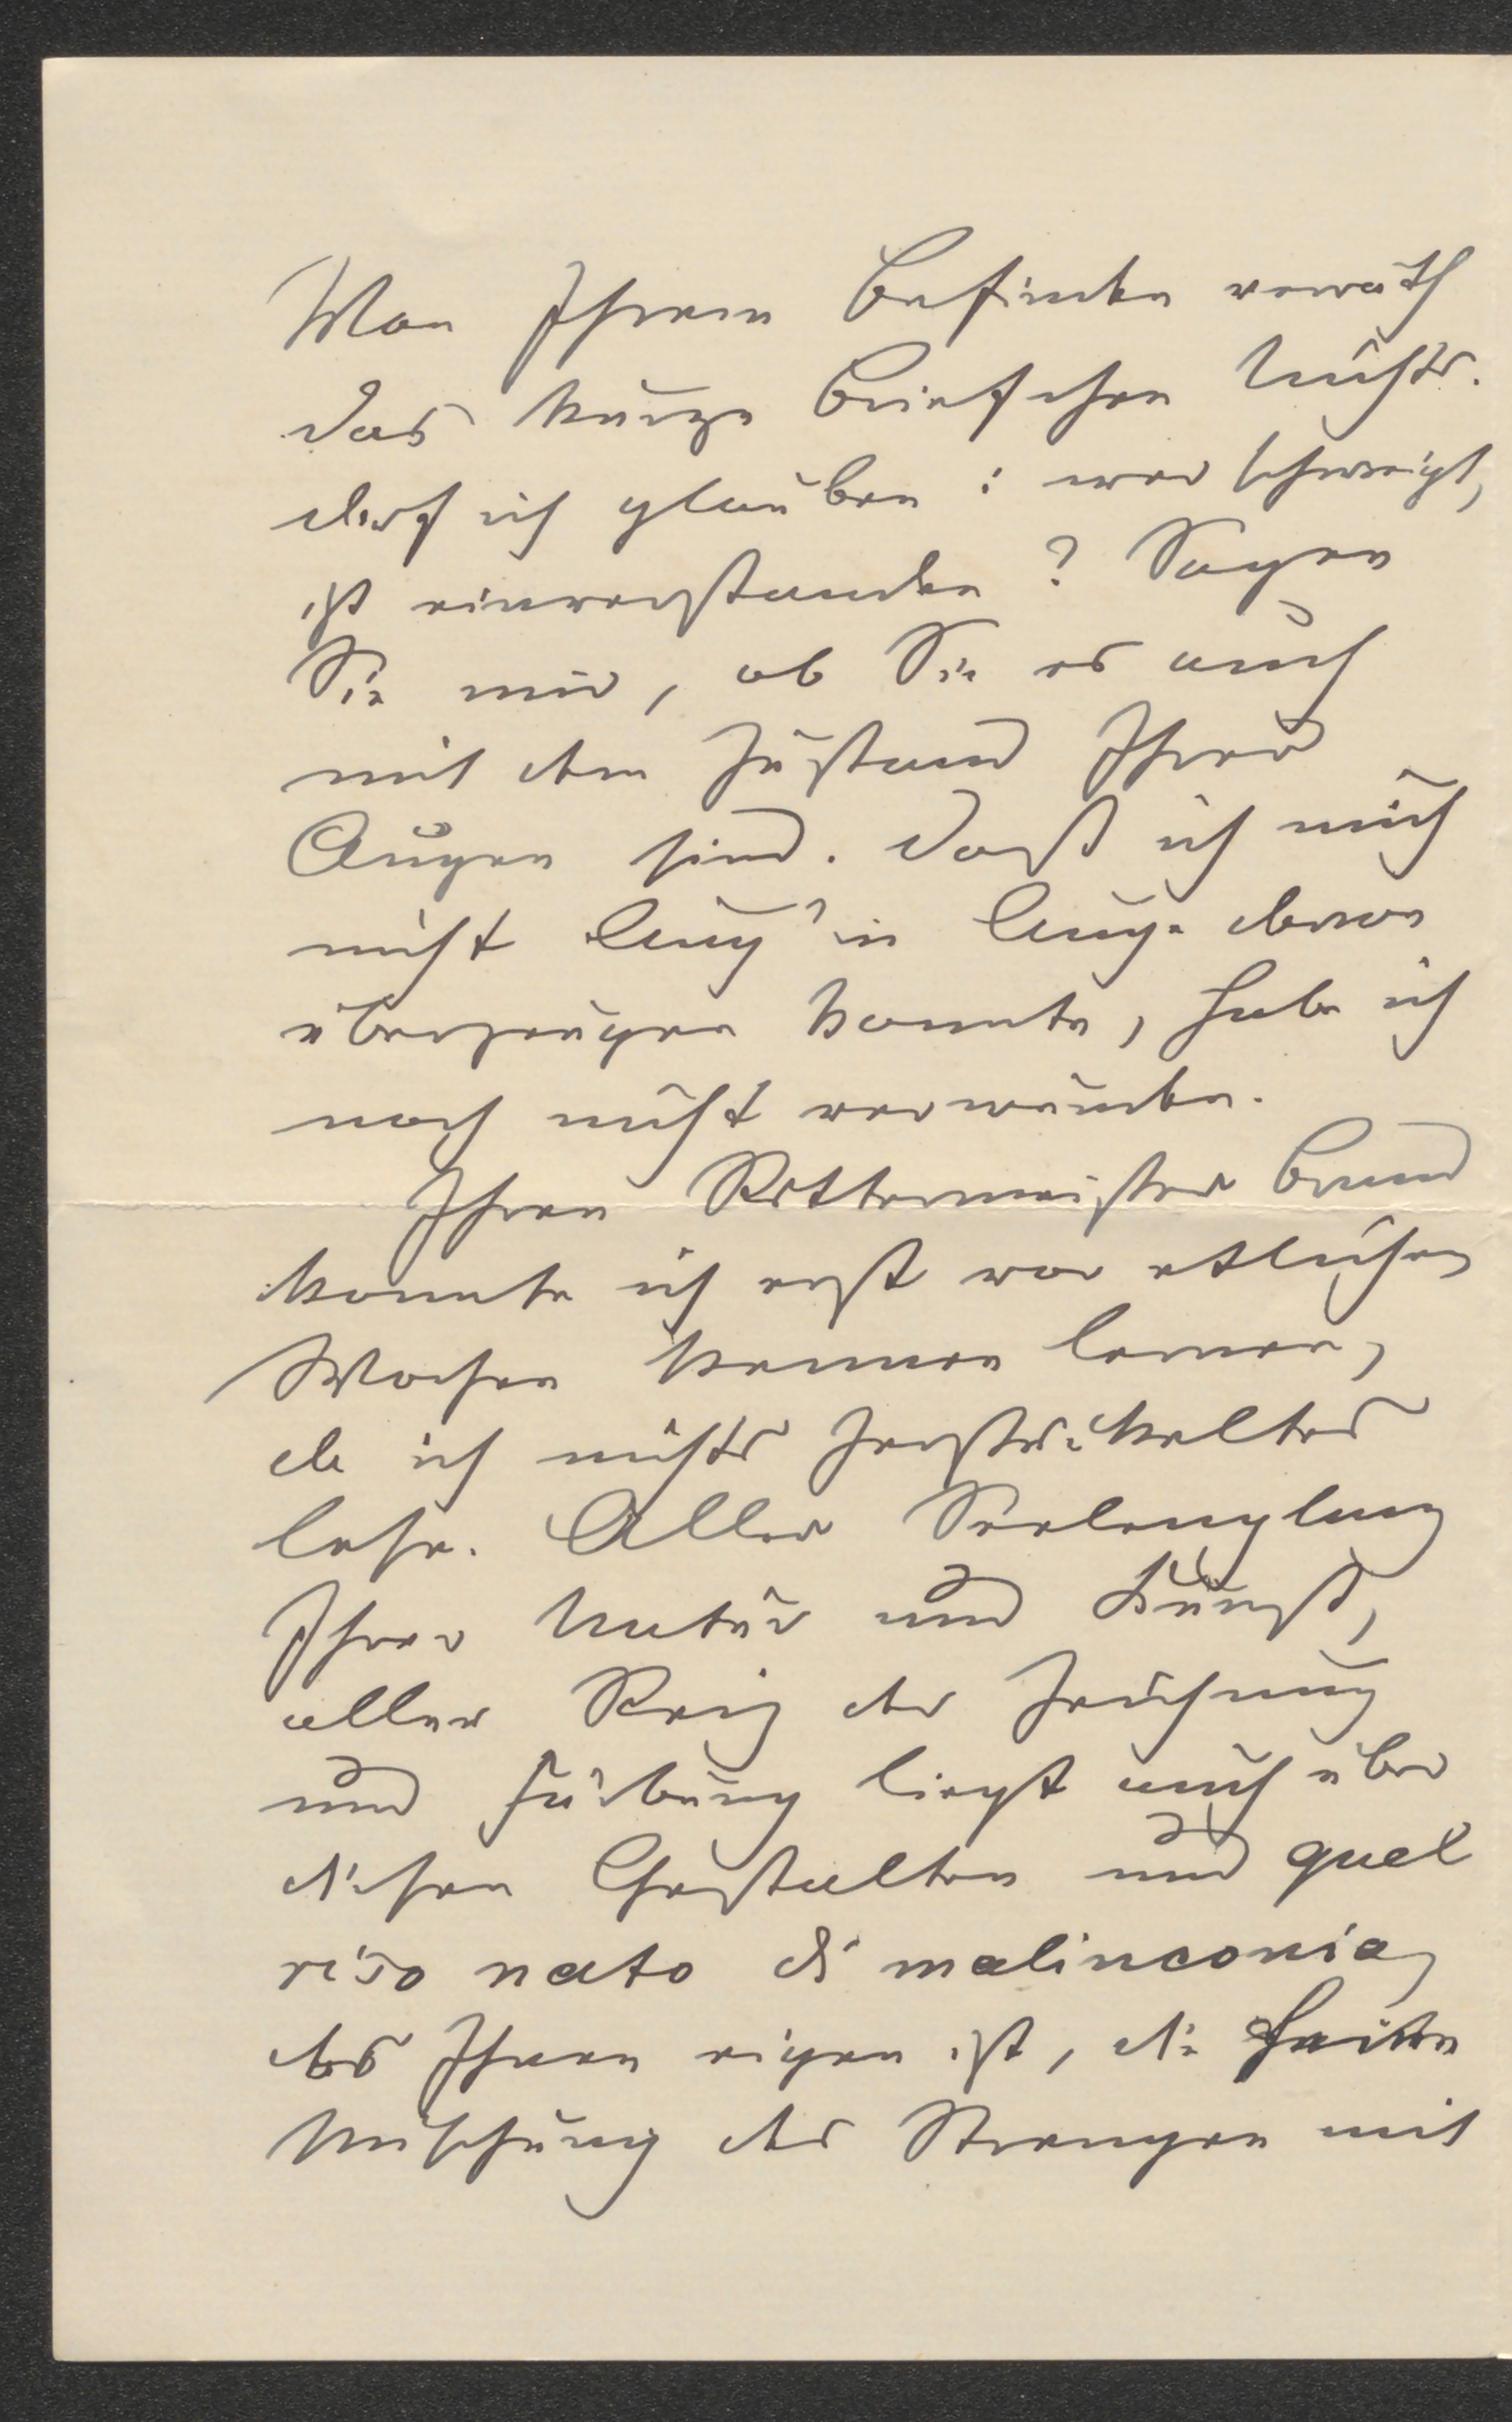 Von Ihrem Befinden verräth
das kurze Briefchen Nichts.
darf ich glauben: wer schweigt,
ist einverstanden? Sagen
Sie mir, ob Sie es auch
mit dem Zustand Ihrer
Augen sind. Daß ich mich
nicht Aug' in Auge davon
überzeugen konnte, habe ich
noch nicht verwunden.
Ihren Rittermeister Brand
konnte ich erst vor etlichen
Wochen kennen lernen,
da ich nichts Zerstückeltes
lese. Aller Seelenglanz
Ihrer Natur und Kunst,
aller Reiz der Zeichnung
und Färbung liegt auch über
diesen Gestalten und quel
riso nato di malinconia,
das Ihnen eigen ist, die
Mischung des Strengen mit